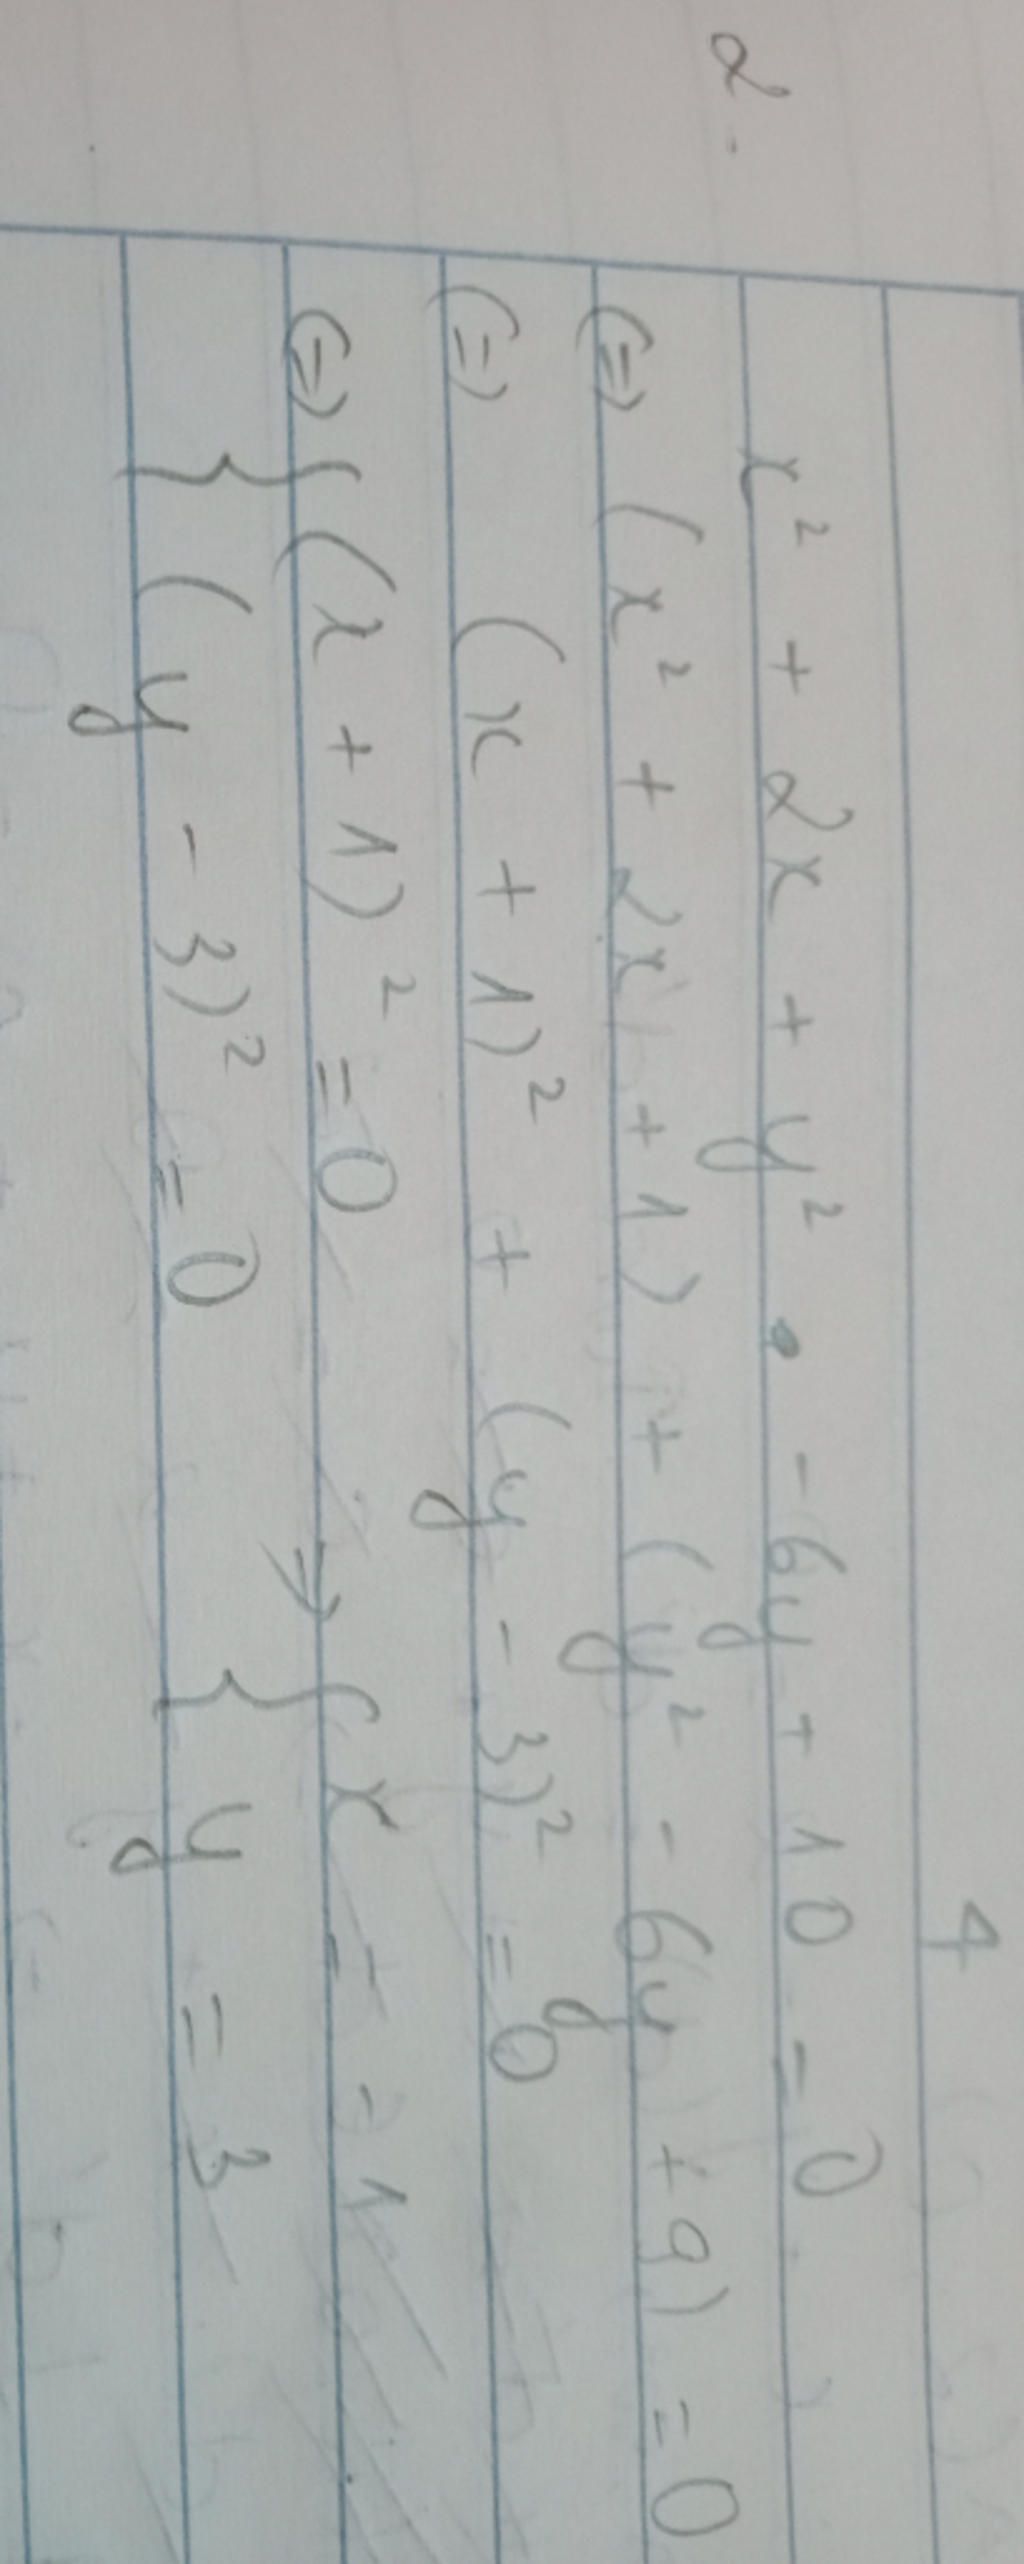 4
2. x² + 2x + y² - 6y + 10 = 0
(=) (x² + 2x + 1) + (y² - 6y + 9) = 0
(=) (x + 1)² + (y - 3)² = 0
(=) { (x + 1)² = 0 => { x = -1
(y - 3)² = 0 y = 3